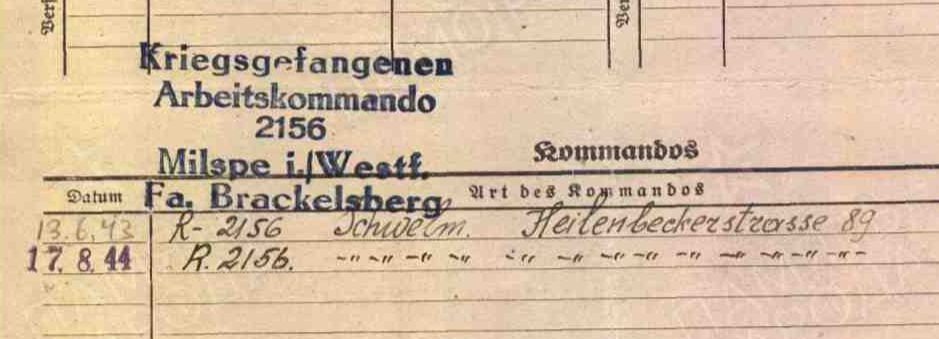 Kriegsgefangenen
Arbeitskommando
2156
Milspe i./Westf.
Fa. Brackelsberg
Kommandos
Datum Art des Kommandos
13.6.43 R- 2156 Schwelm. Heilenbeckerstrasse 89
17. 8. 44 R. 2156. -"- -"- -"- -"- -"- -"- -"- -"- -"- -"- -"- -"- -"-